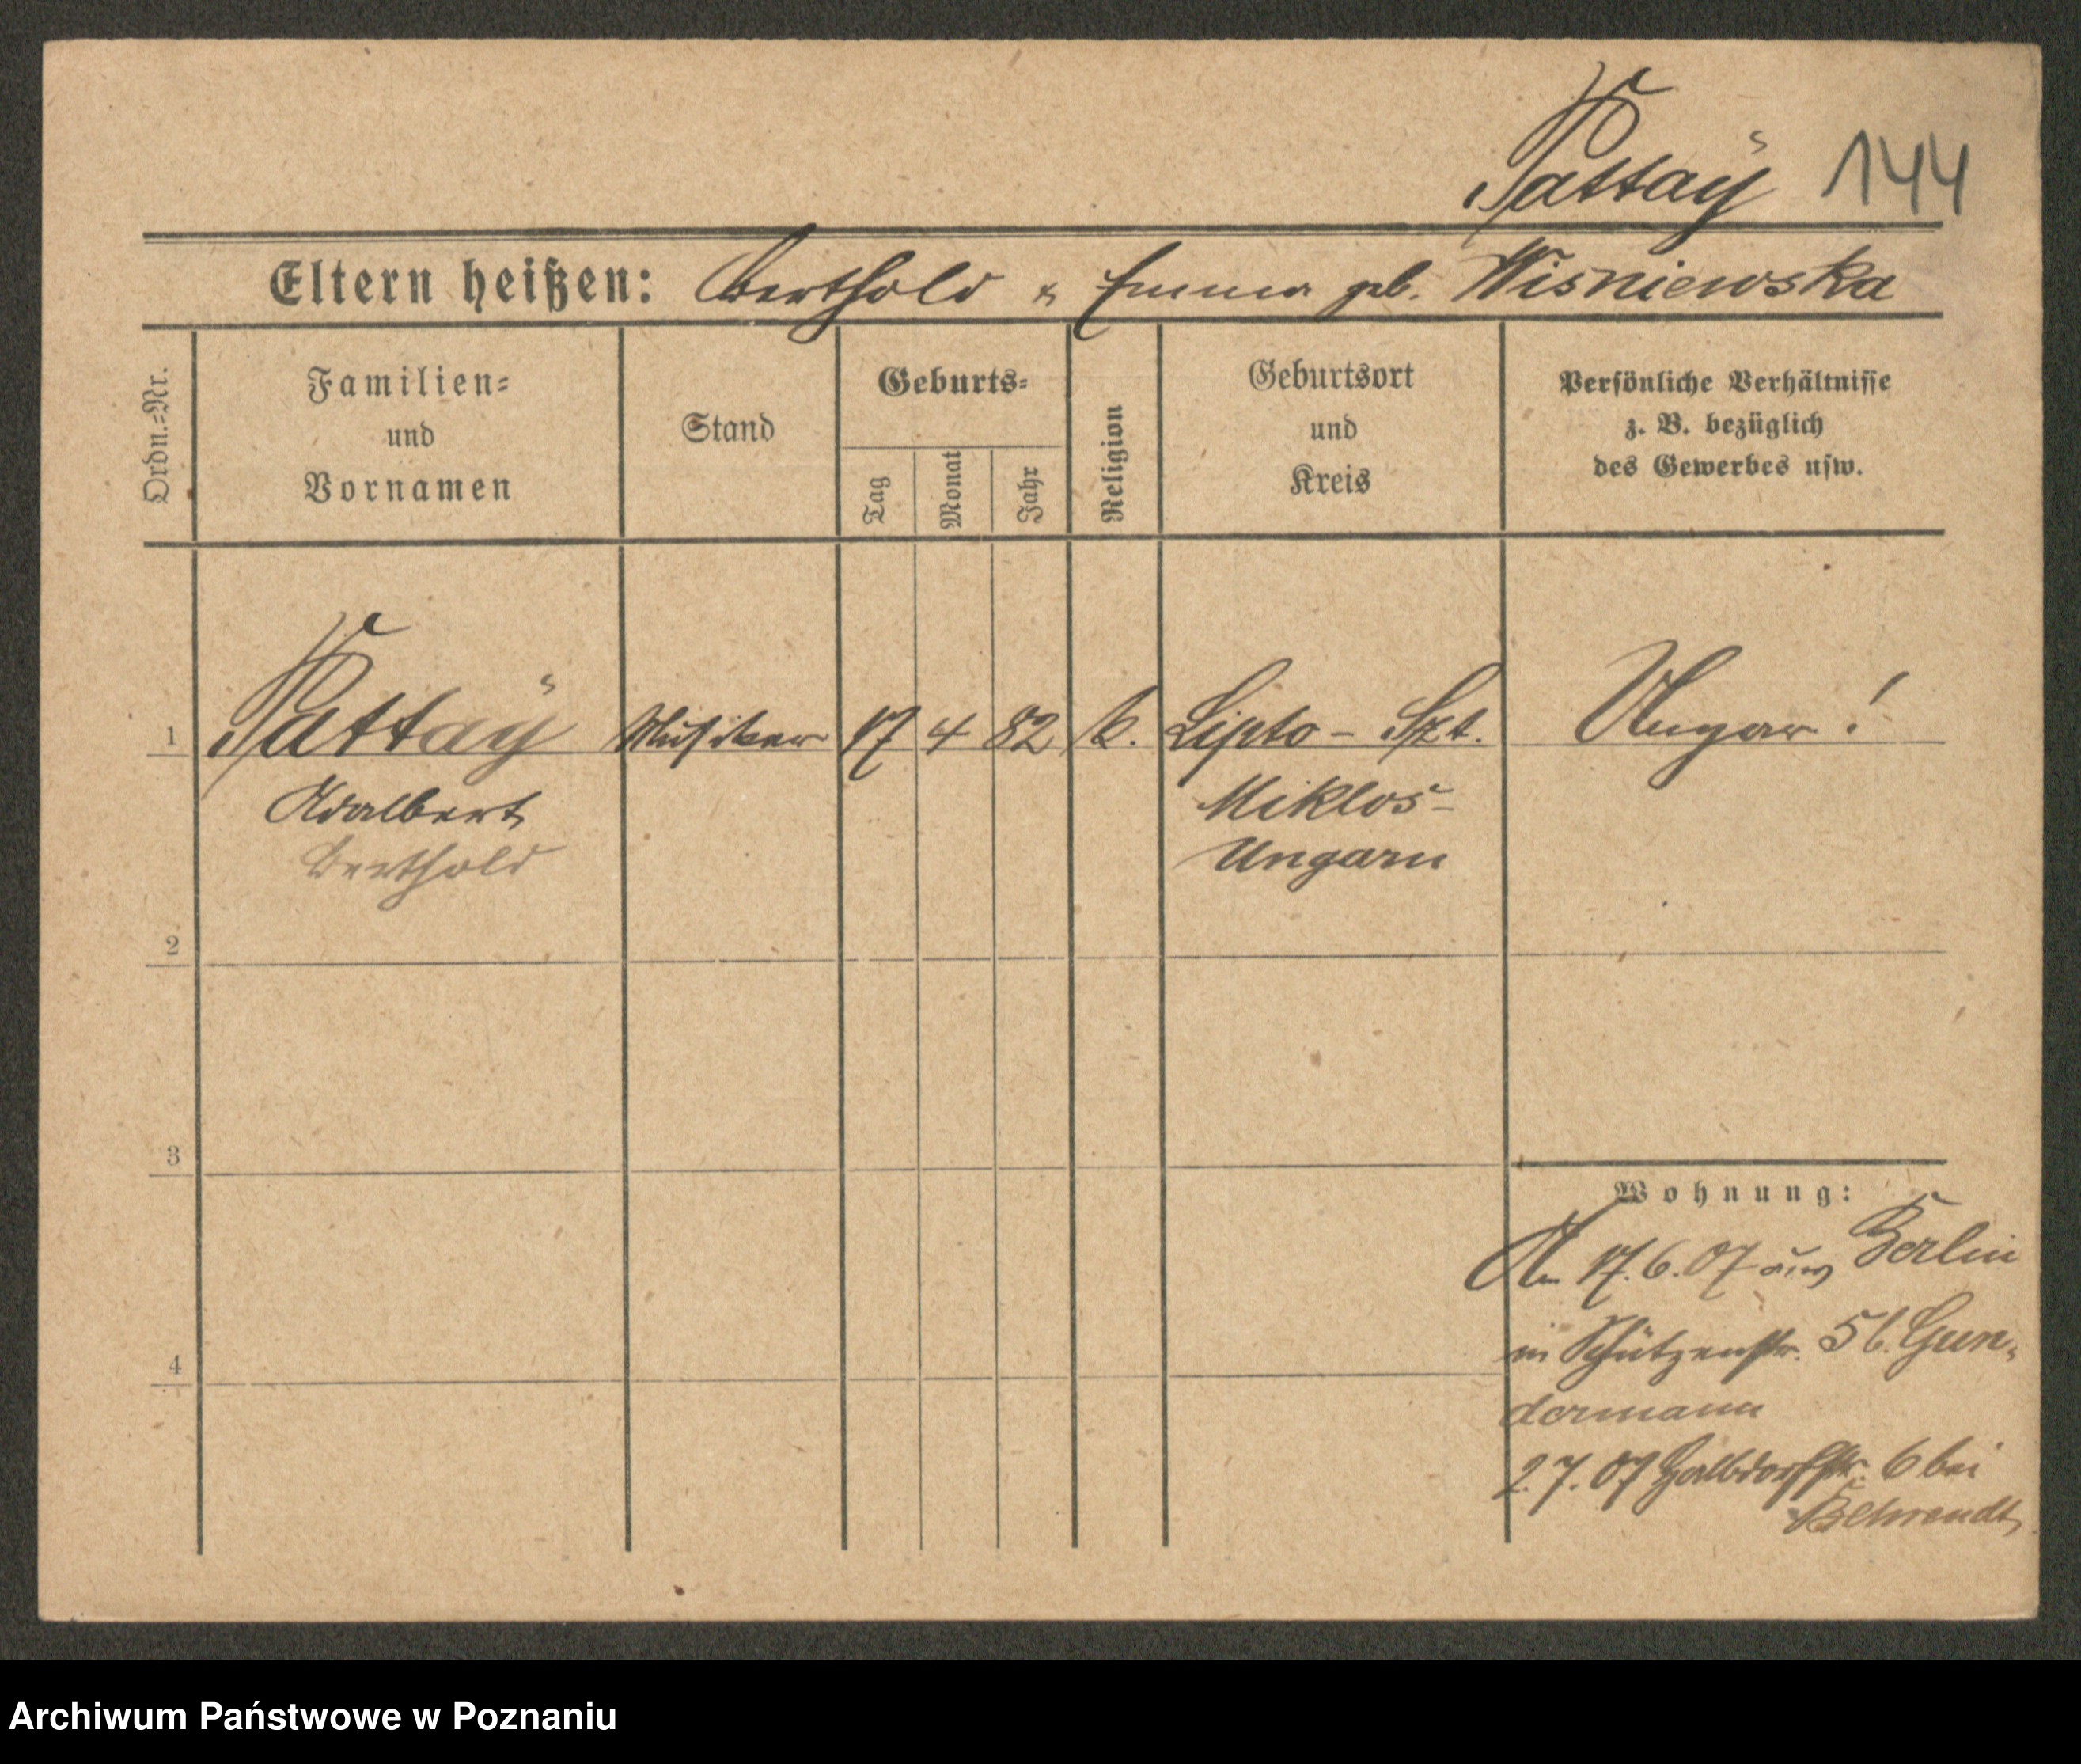 Pattaÿ 144
Eltern heißen: Berthold & Emma geb. Wisniewska
Ordn.=Nr.
Familien=
und
Vornamen
Stand
Geburts=
Tag
Monat
Jahr
Religion
Geburtsort
und
Kreis
Persönliche Verhältnisse
z. B. bezüglich
des Gewerbes usw.
1 Pattaÿ Musiker 17 4 82 k. Lipto - Szt. Ungar!
Adalbert Miklos-
Berthold Ungarn
2
3
Wohnung:
Am 17.6.07 aus Berlin
in Schützenstr. 56. Gun-
4
dermann
2.7.07 Halbdorfstr. 6 bei
Behrendt
Archiwum Państwowe w Poznaniu